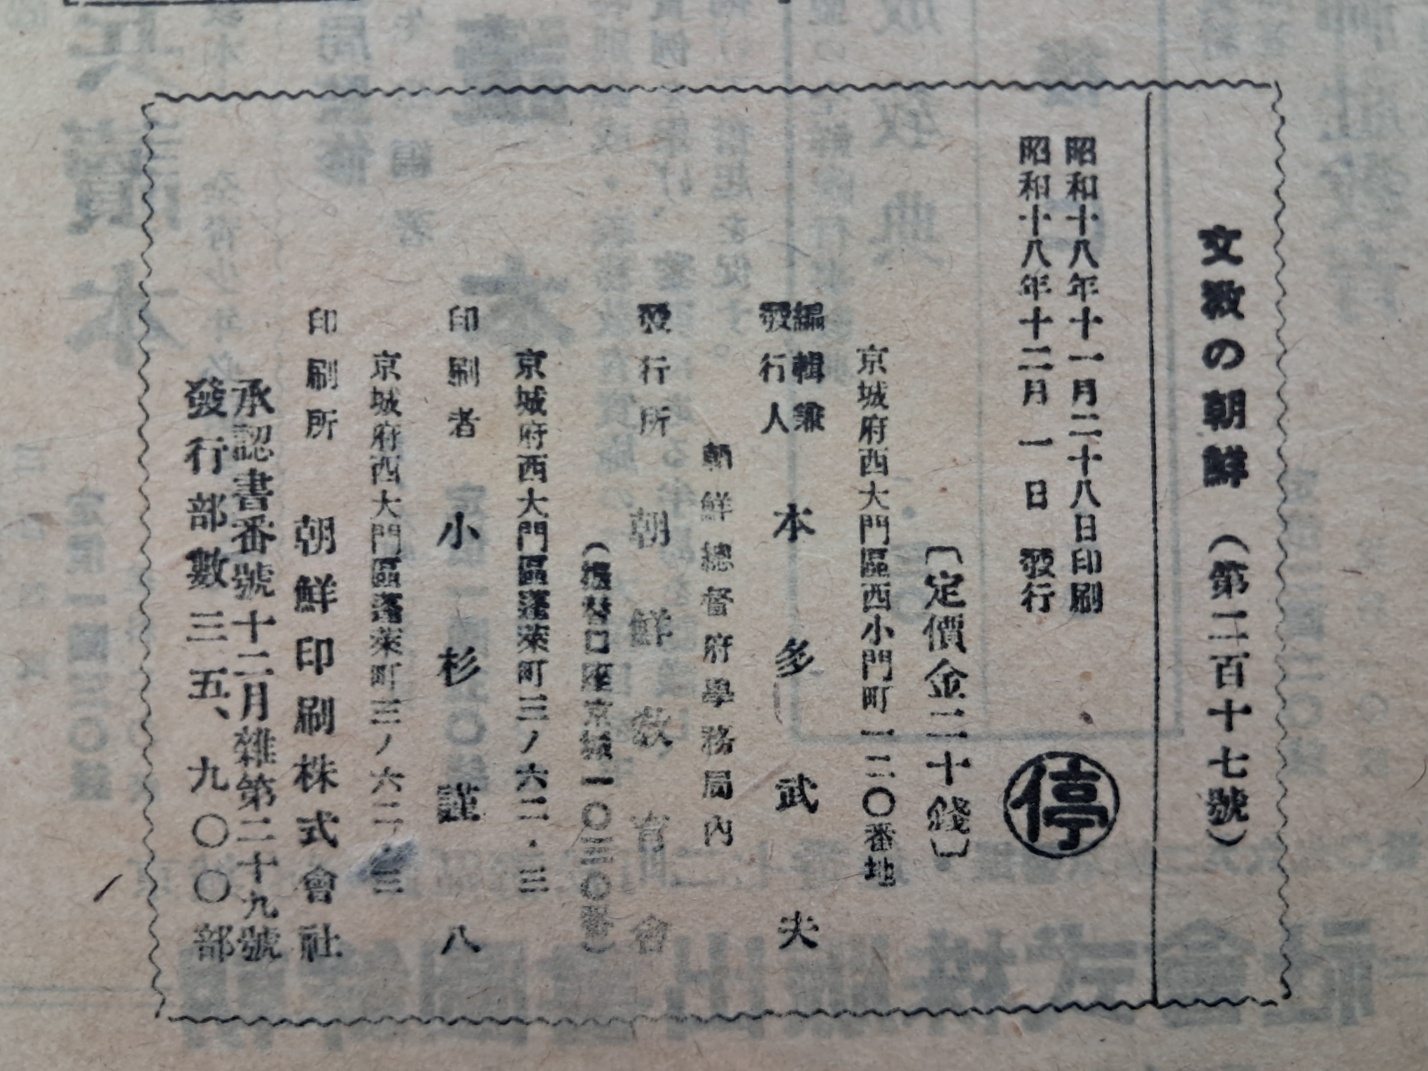 文教の朝鮮（第二百十七號）
昭和十八年十一月二十八日印刷
昭和十八年十二月一日發行
停
〔定價金二十錢〕
京城府西大門區西小門町一二〇番地
編輯兼
發行人 本多武夫
朝鮮總督府學務局内
發行所 朝鮮教育會
（振替口座京城一〇三〇番）
京城府西大門區蓬萊町三ノ六二・三
印刷者 小杉謹八
京城府西大門區蓬萊町三ノ六二・三
印刷所 朝鮮印刷株式會社
承認書番號十二月雜第二十九號
發行部數三五、九〇〇部